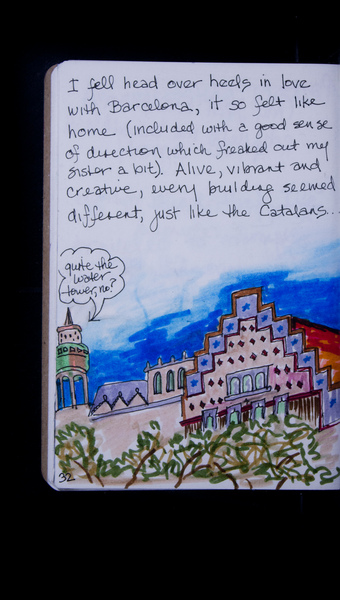 I fell head over heels in love
with Barcelona, it so felt like
home (included with a good sense
of direction which freaked out my
sister a bit). Alive, vibrant and
creative, every building seemed
different, just like the Catalans...
quite the
water
tower, no?
32